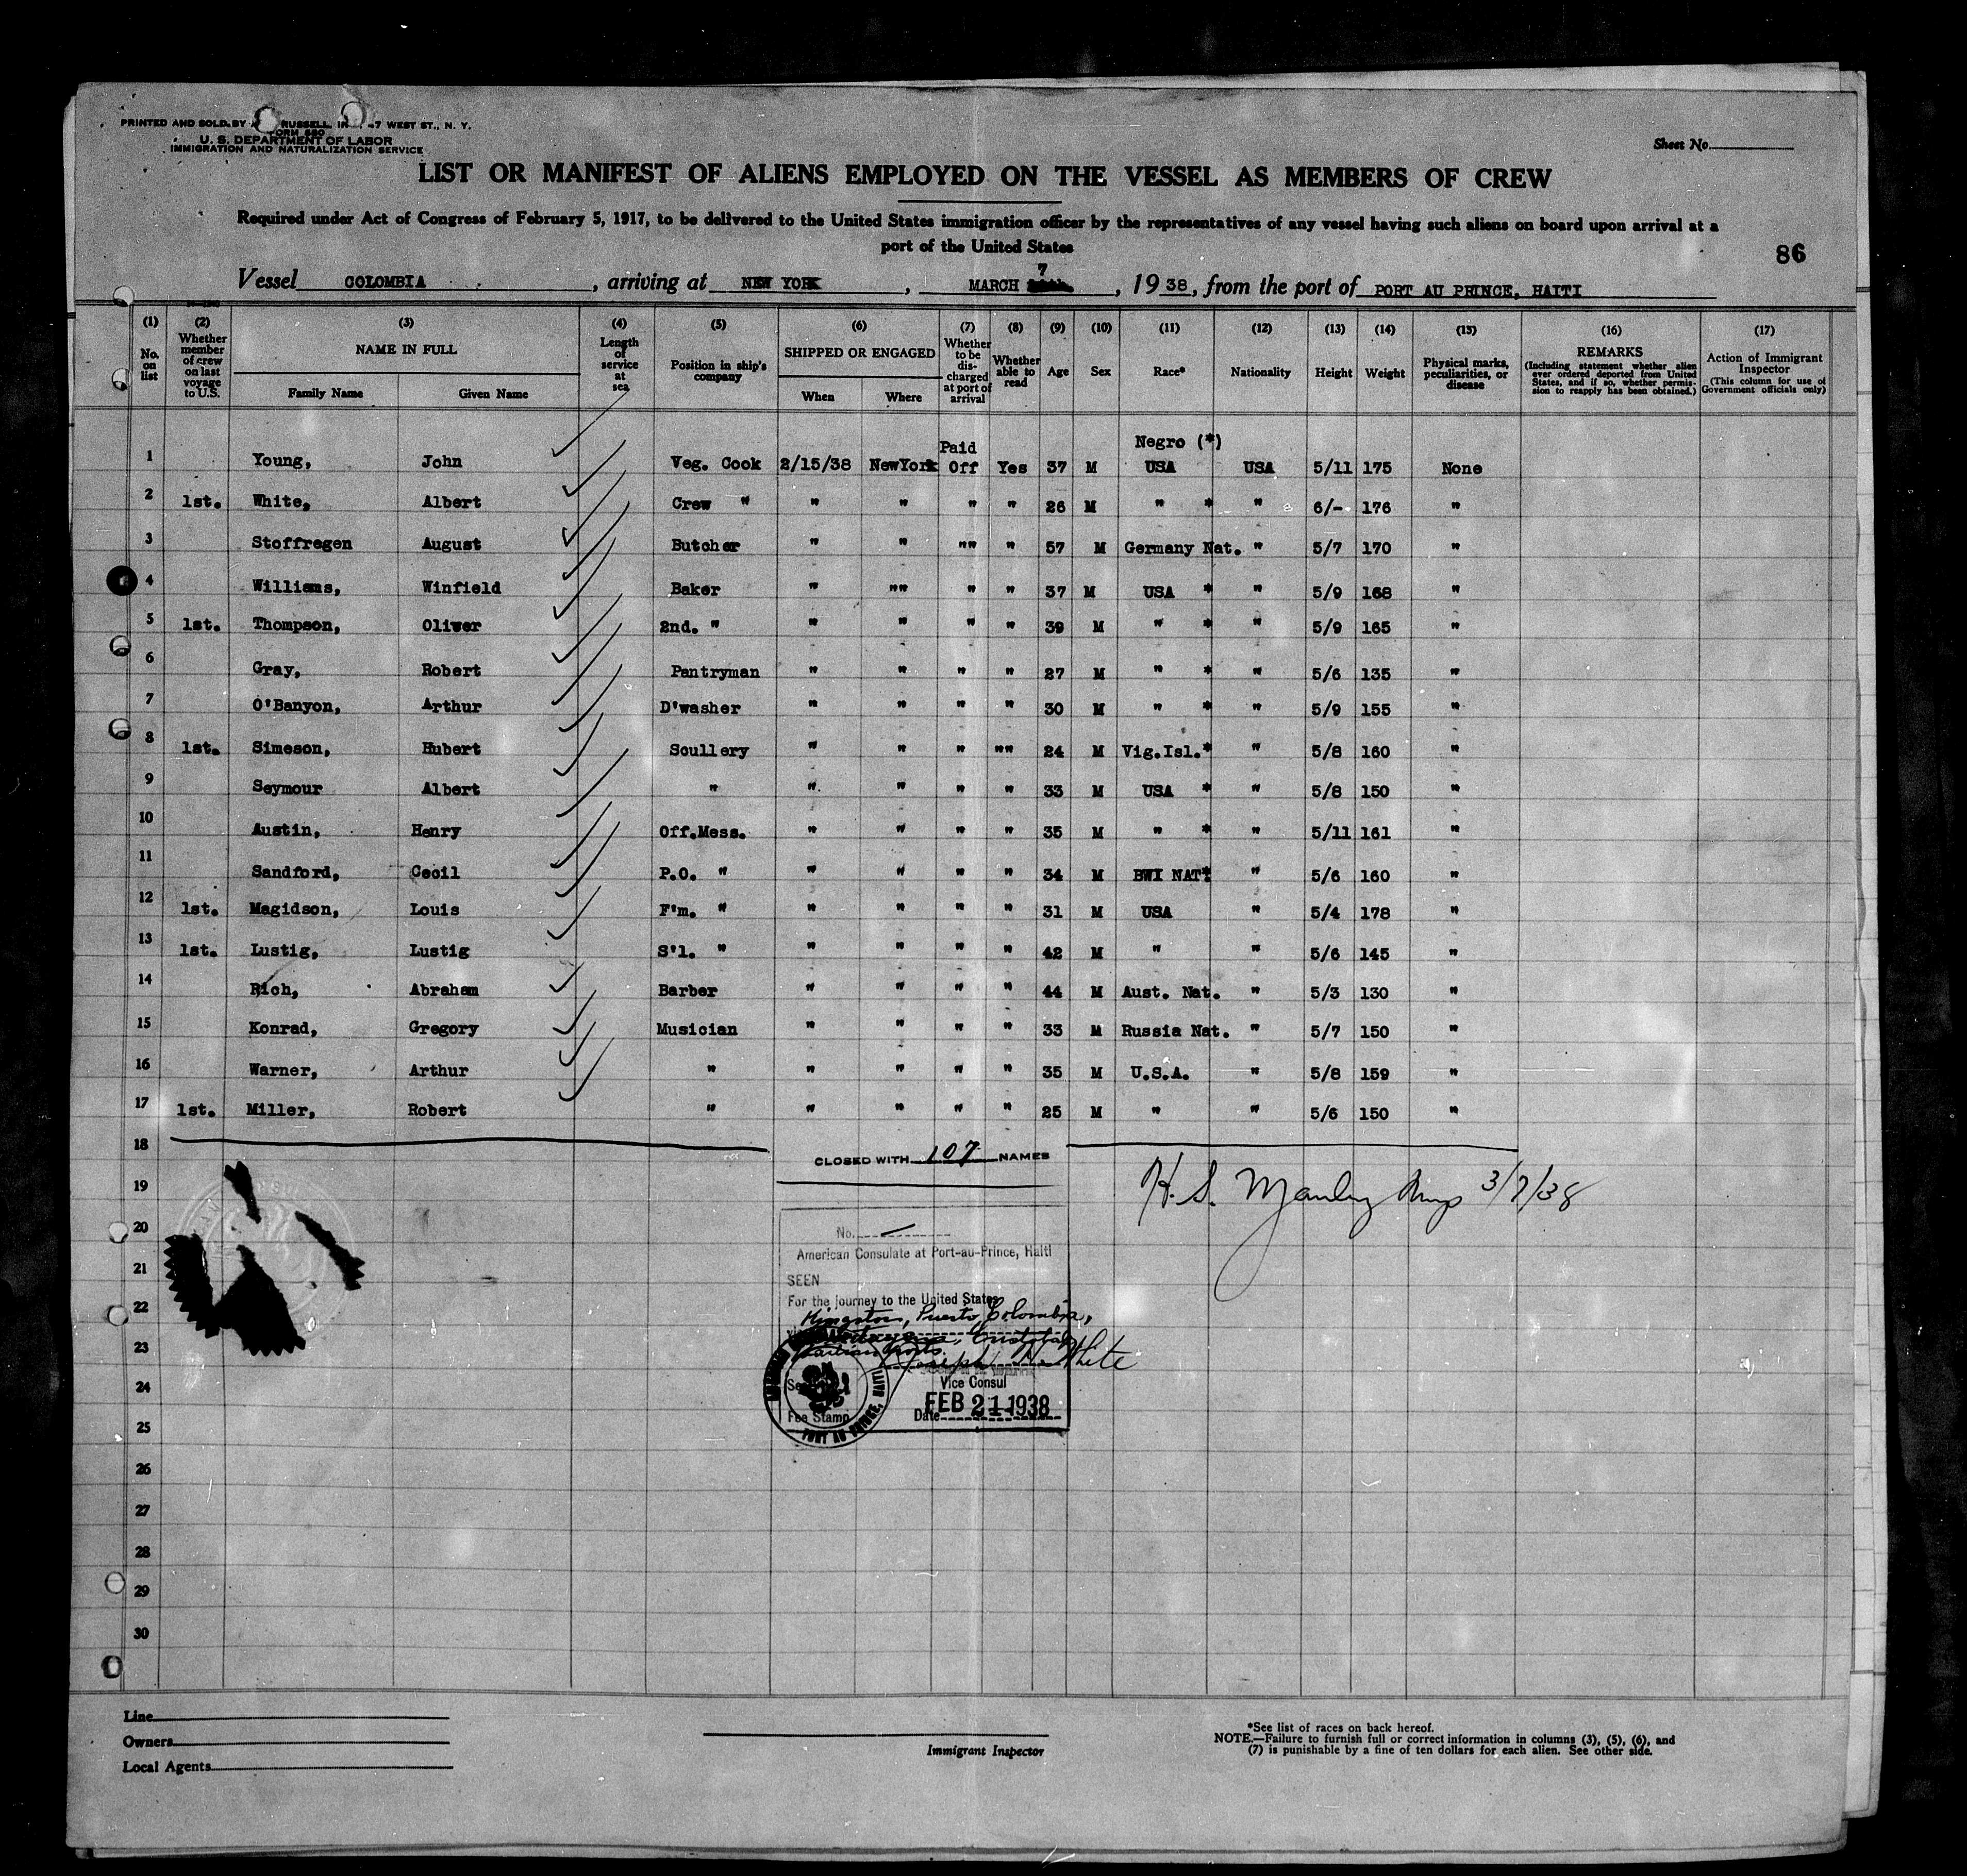 PRINTED AND SOLD BY RUSSELL, 47 WEST ST., N. Y.
FORM 680
U. S. DEPARTMENT OF LABOR
IMMIGRATION AND NATURALIZATION SERVICE
Sheet No.
LIST OR MANIFEST OF ALIENS EMPLOYED ON THE VESSEL AS MEMBERS OF CREW
Required under Act of Congress of February 5, 1917, to be delivered to the United States immigration officer by the representatives of any vessel having such aliens on board upon arrival at a
port of the United States
86
Vessel COLOMBIA, arriving at NEW YORK, MARCH 7, 1938, from the port of PORT AU PRINCE, HAITI
(1) (2) (3) (4) (5) (6) (7) (8) (9) (10) (11) (12) (13) (14) (15) (16) (17)
No. on list
Whether member of crew on last voyage to U.S.
NAME IN FULL
Family Name Given Name
Length of service at sea
Position in ship's company
SHIPPED OR ENGAGED
When Where
Whether to be discharged at port of arrival
Whether able to read
Age
Sex
Race*
Nationality
Height
Weight
Physical marks, peculiarities, or disease
REMARKS
(Including statement whether alien ever ordered deported from United States, and if so, whether permission to reapply has been obtained.)
Action of Immigrant Inspector
(This column for use of Government officials only)
Paid Negro (*)
1 Young, John Veg. Cook 2/15/38 NewYork Off Yes 37 M USA USA 5/11 175 None
2 1st. White, Albert Crew " " " " " 26 M " * " 6/- 176 "
3 Stoffregen August Butcher " " "" " 57 M Germany Nat. " 5/7 170 "
4 Williams, Winfield Baker " "" " " 37 M USA * " 5/9 168 "
5 1st. Thompson, Oliver 2nd. " " " " " 39 M " * " 5/9 165 "
6 Gray, Robert Pantryman " " " " 27 M " * " 5/6 135 "
7 O'Banyon, Arthur D'washer " " " " 30 M " * " 5/9 155 "
8 1st. Simeson, Hubert Scullery " " " "" 24 M Vig.Isl.* " 5/8 160 "
9 Seymour Albert " " " " " 33 M USA * " 5/8 150 "
10 Austin, Henry Off.Mess. " " " " 35 M " * " 5/11 161 "
11 Sandford, Cecil P.O. " " " " " 34 M BWI NAT* " 5/6 160 "
12 1st. Magidson, Louis F'm. " " " " " 31 M USA " 5/4 178 "
13 1st. Lustig, Lustig S'l. " " " " " 42 M " " 5/6 145 "
14 Rich, Abraham Barber " " " " 44 M Aust. Nat. " 5/3 130 "
15 Konrad, Gregory Musician " " " " 33 M Russia Nat. " 5/7 150 "
16 Warner, Arthur " " " " " 35 M U.S.A. " 5/8 159 "
17 1st. Miller, Robert " " " " " 25 M " " 5/6 150 "
18
CLOSED WITH 107 NAMES
H. S. Manley 3/7/38
19
20
21
22
23
24
25
26
27
28
29
30
No.
American Consulate at Port-au-Prince, Haiti
SEEN
For the journey to the United States
Kingston, Puerto Colombia,
Cristobal
Haitian Ports.
Joseph White
Vice Consul
Fee Stamp
Date FEB 21 1938
PORT AU PRINCE, HAITI
Line
Owners
Local Agents
Immigrant Inspector
*See list of races on back hereof.
NOTE.—Failure to furnish full or correct information in columns (3), (5), (6), and
(7) is punishable by a fine of ten dollars for each alien. See other side.